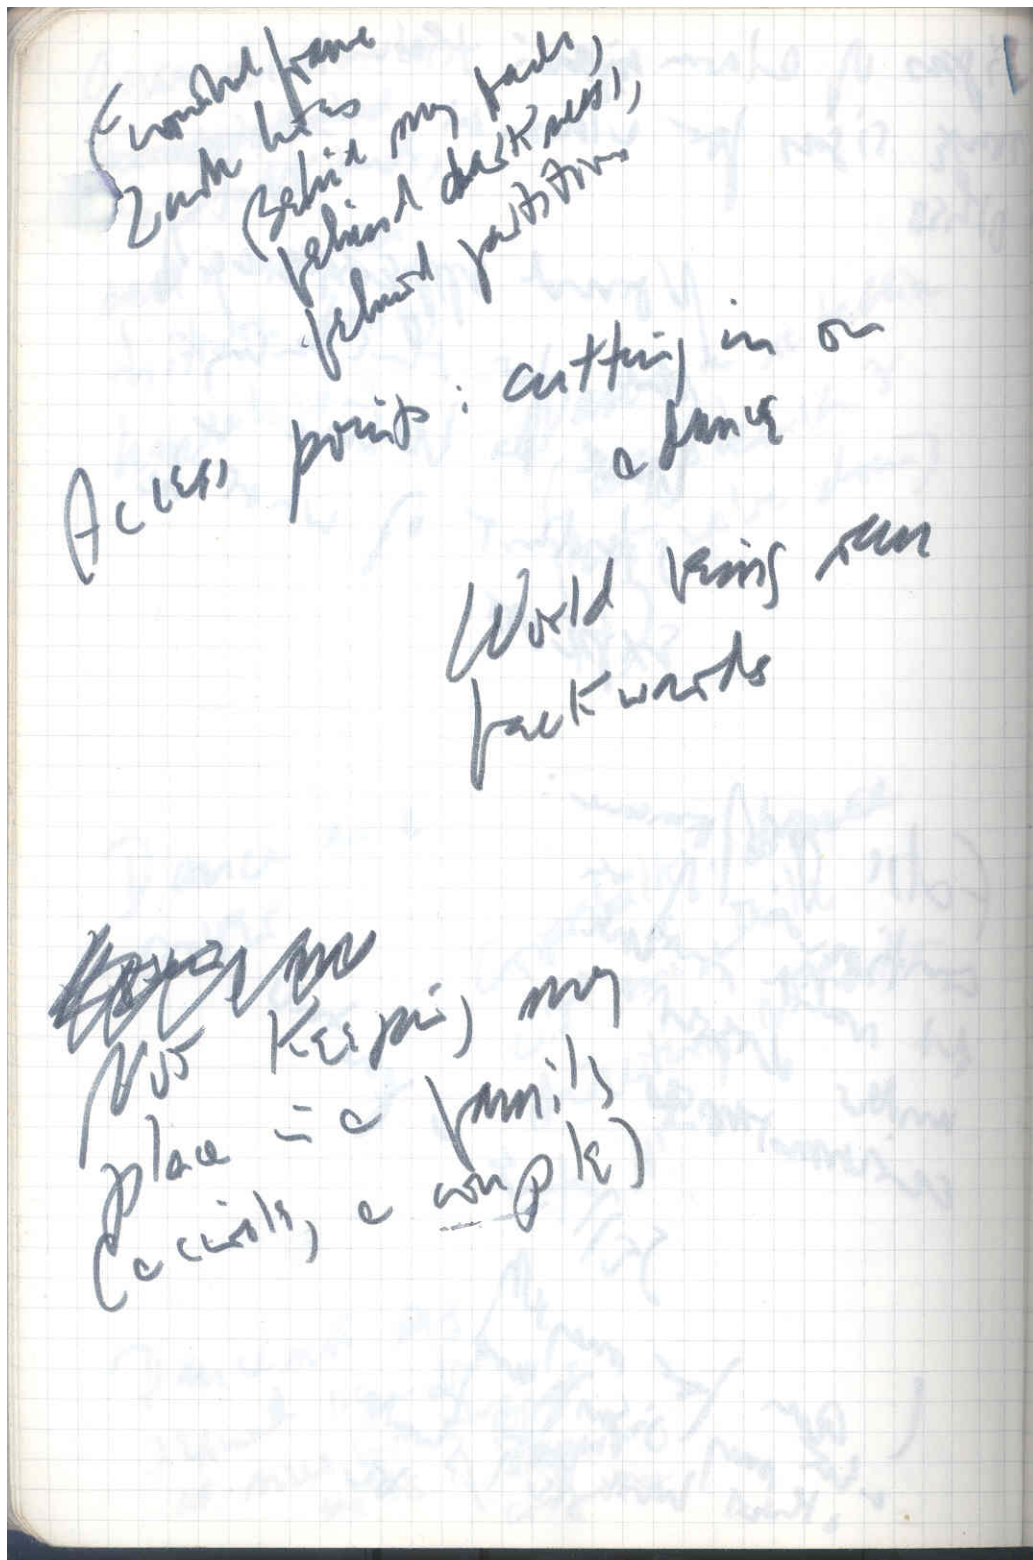 frame
Behind my back,
behind darkness,
behind partition
Access points: cutting in on
a dance
World being run
backwards
Not keeping my
place in a family
(a circle, a couple)